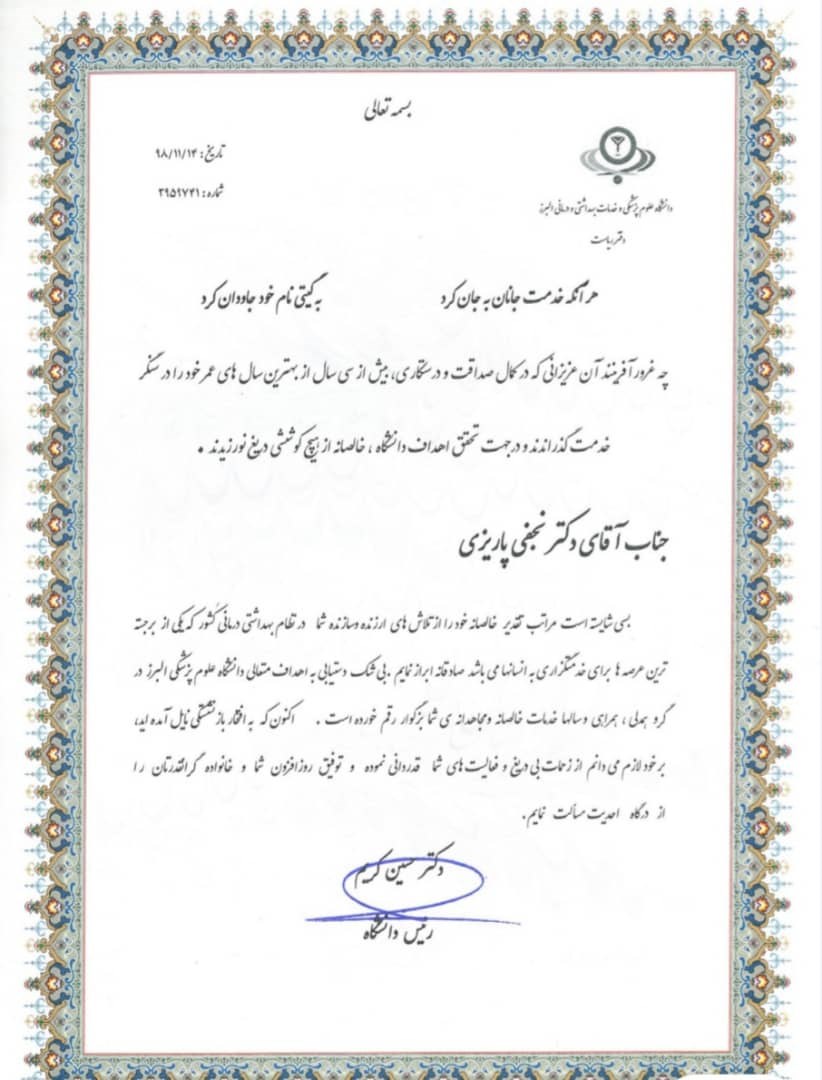 بسمه تعالی
تاریخ: ۹۸/۱۱/۱۴
شماره: ۳۹۵۹۷۴۱
دانشگاه علوم پزشکی و خدمات بهداشتی و درمانی البرز
دفتر ریاست
هر آنکه خدمت جانان به جان کرد به گیتی نام خود جاودان کرد
چه غرور آفرینند آن عزیزانی که در کمال صداقت و درستکاری، بیش از سی سال از بهترین سال های عمر خود را در سنگر
خدمت گذراندند و در جهت تحقق اهداف دانشگاه ، خالصانه از هیچ کوششی دریغ نورزیدند .
جناب آقای دکتر نجفی پاریزی
بسی شایسته است مراتب تقدیر خالصانه خود را از تلاش های ارزنده وسازنده شما در نظام بهداشتی درمانی کشور که یکی از برجسته
ترین عرصه ها برای خدمتگزاری به انسانها می باشد صادقانه ابراز نمایم .بی شک دستیابی به اهداف متعالی دانشگاه علوم پزشکی البرز در
گرو همدلی ، همراهی وسالها خدمات خالصانه ومجاهدانه ی شما بزرگوار رقم خورده است . اکنون که به افتخار بازنشستگی نایل آمده اید،
بر خود لازم می دانم از زحمات بی دریغ و فعالیت های شما قدردانی نموده و توفیق روزافزون شما و خانواده گرانقدرتان را
از درگاه احدیت مسألت نمایم.
دکتر حسین کریم
رئیس دانشگاه